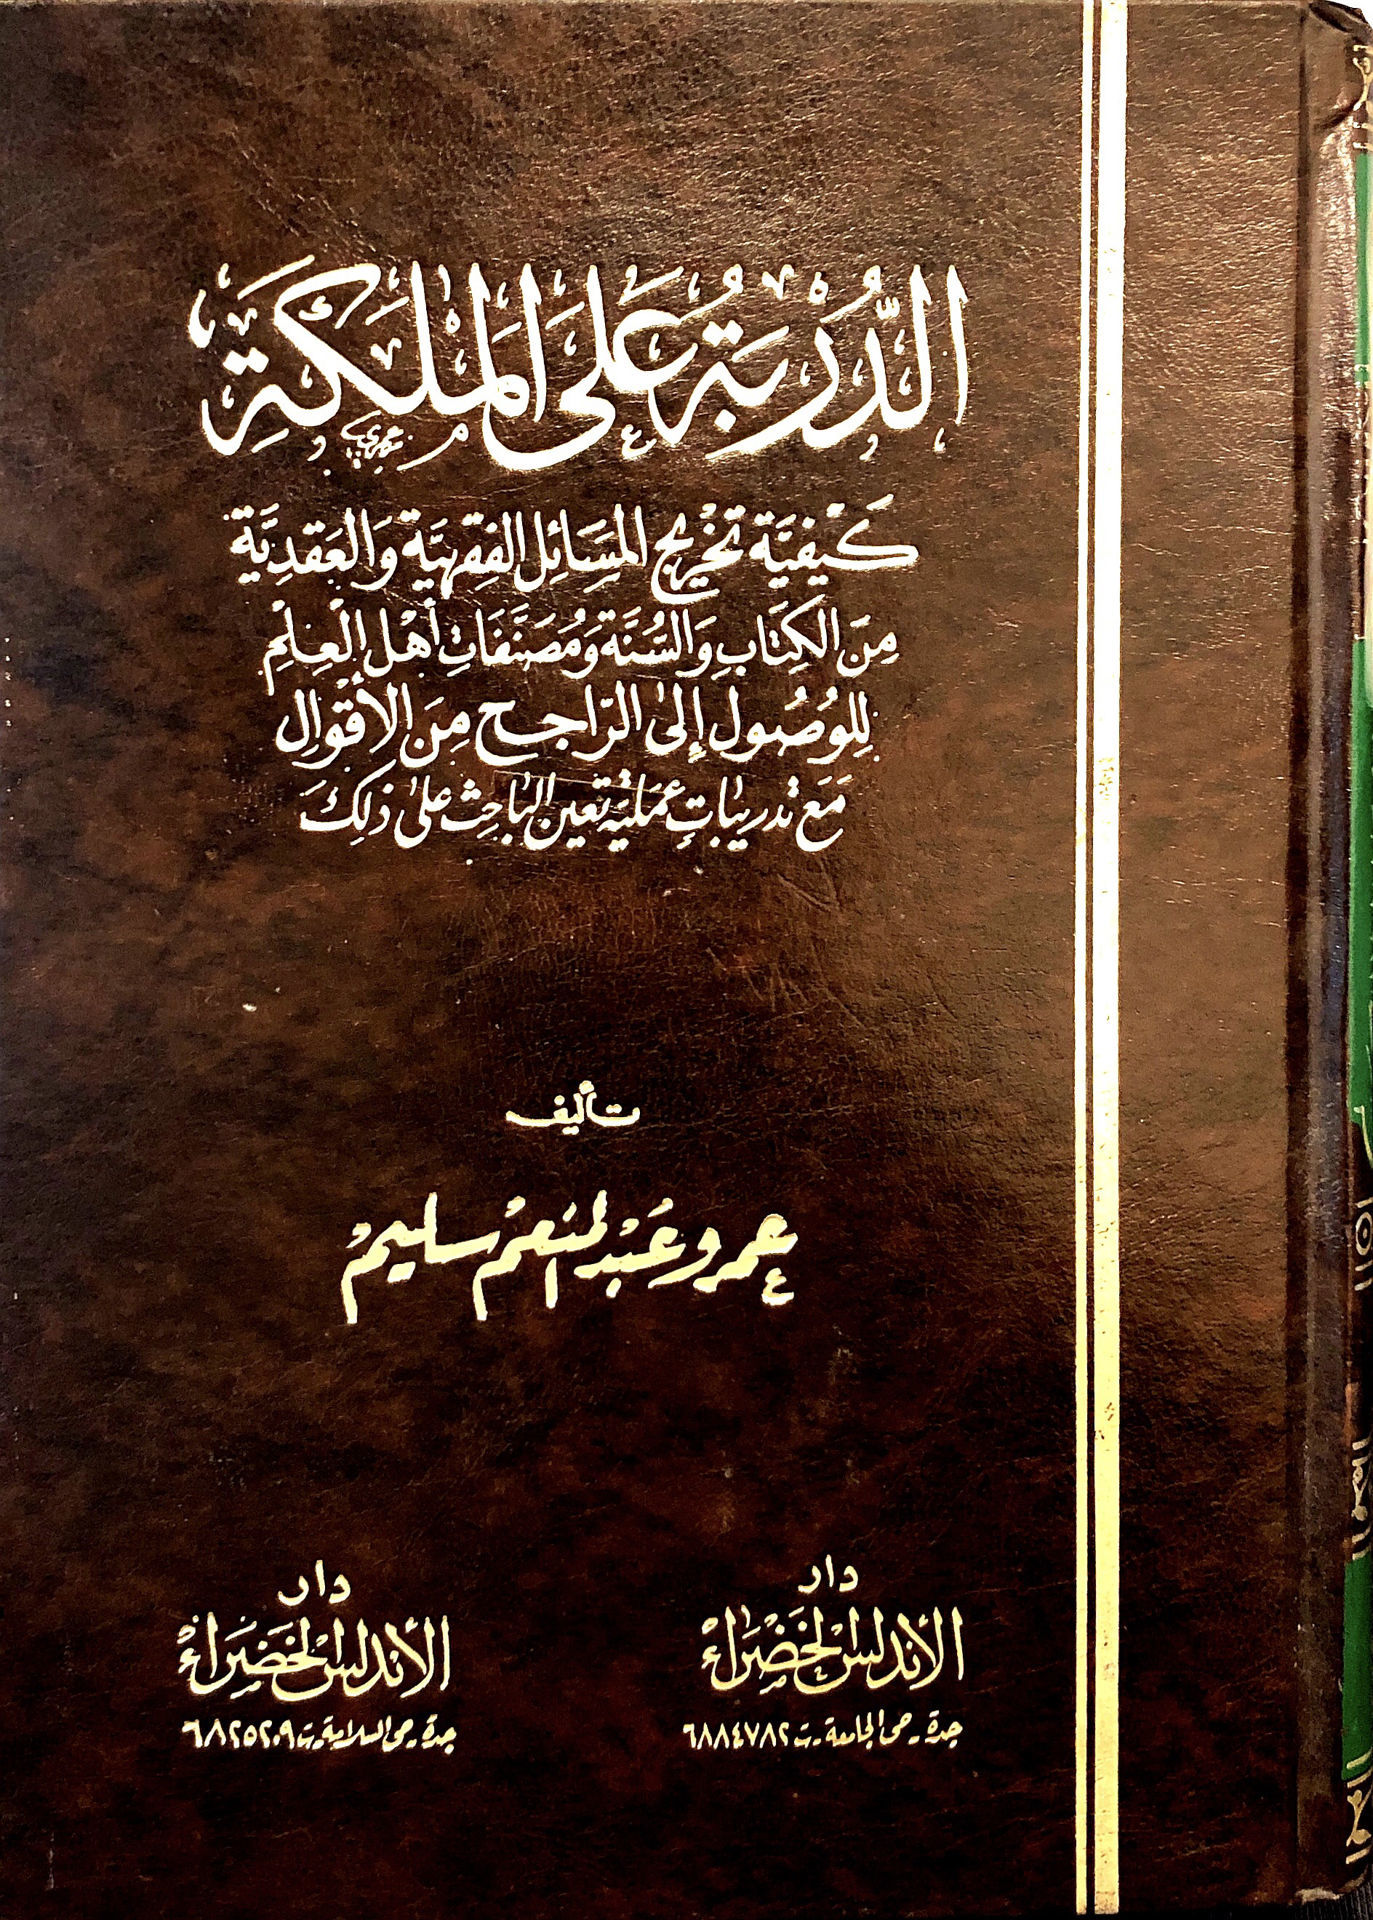 الدُّرْبَةُ عَلَى المَلَكَةِ
كَيْفِيَّة تَخْرِيْج المَسَائِل الفِقهِيَّة وَالعَقَدِيَّة
مِنَ الكِتَابِ وَالسُّنَّة وَمُصَنَّفَاتِ أَهْل العِلمِ
لِلوُصُول إِلى الرَّاجِح مِنَ الأَقْوَال
مَعَ تدريبَاتٍ عَمَلِيَّة تُعين البَاحِث عَلى ذلِكَ
تأليف
عمرو عَبْد المنعم سليم
دار
الأندلس الخَضْرَاء
جدة ـ حي الجامعة ـ ت ٦٨٨٤٧٨٢
دار
الأندلس الخَضْرَاء
جدة ـ حي السلامة ـ ت ٦٨٢٥٢٠٩